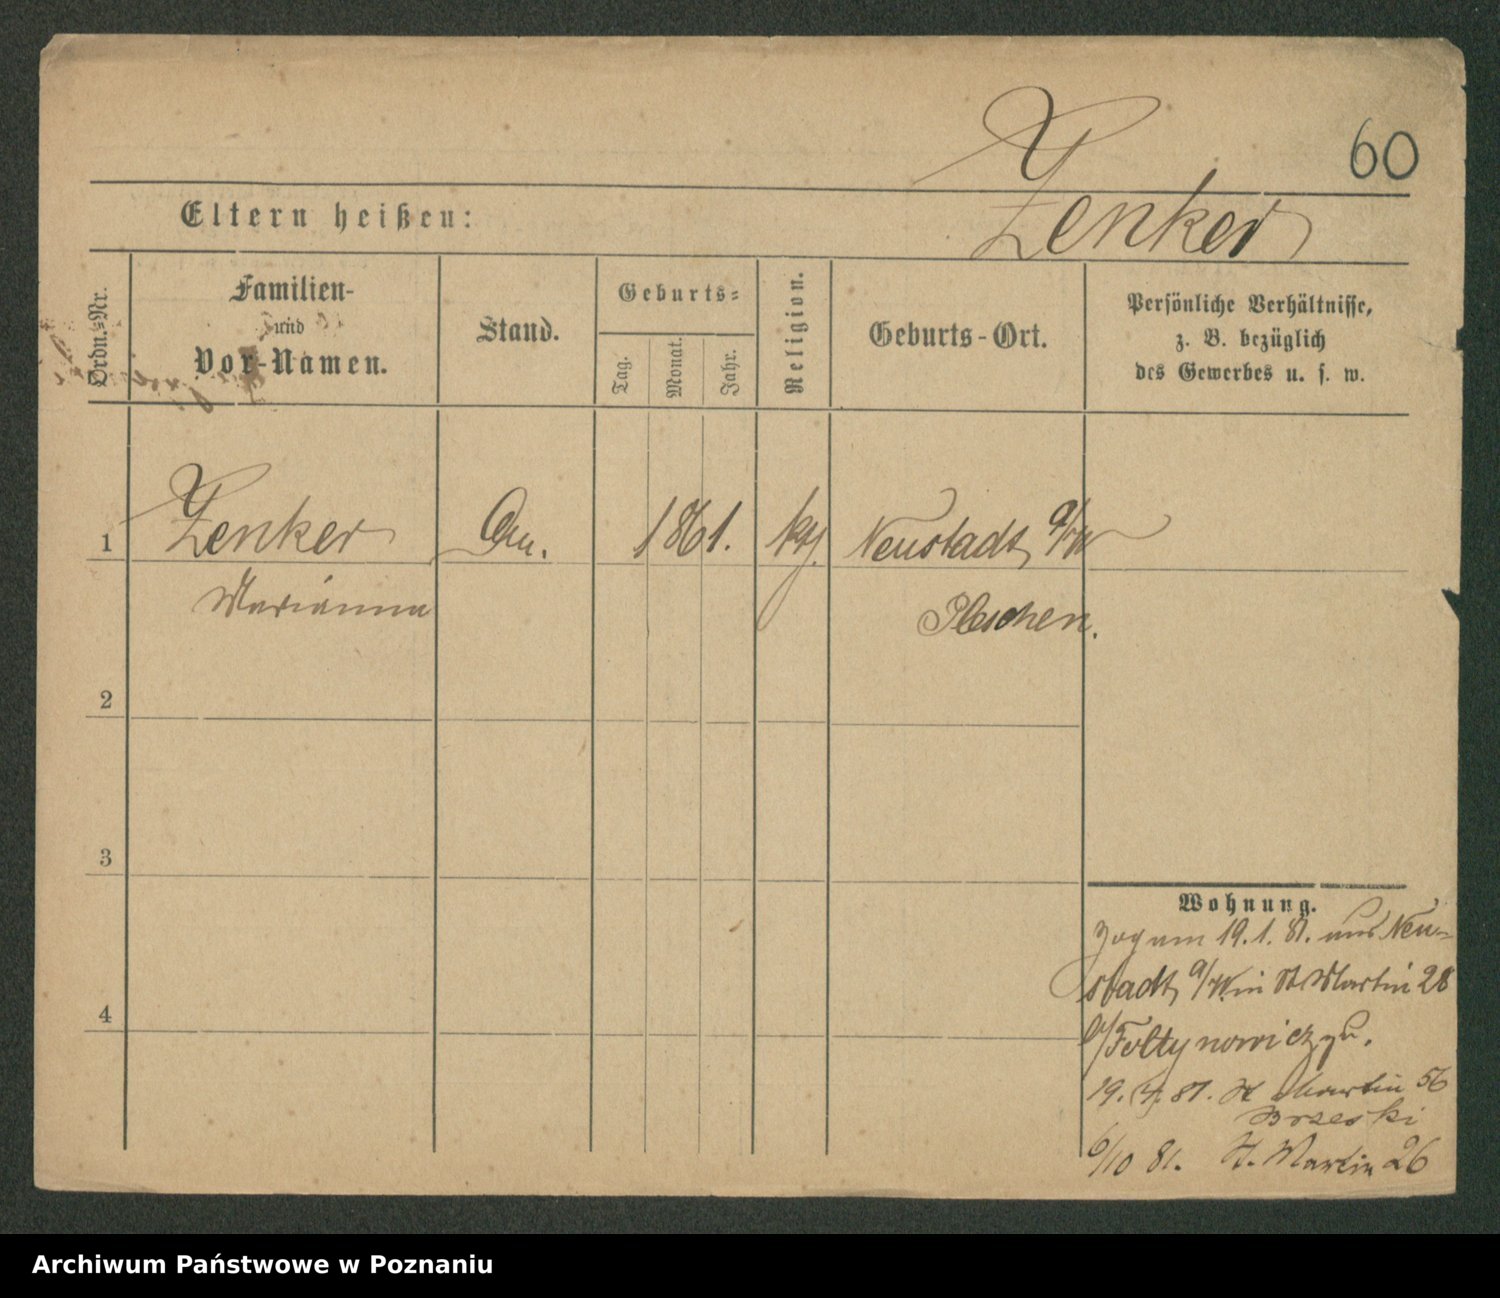 60
Zenker
Eltern heißen:
Ordn.-Nr.
Familien-
und
Vor-Namen.
Stand.
Geburts-
Tag.
Monat.
Jahr.
Religion.
Geburts-Ort.
Persönliche Verhältnisse,
z. B. bezüglich
des Gewerbes u. s. w.
1
Zenker
1861.
Neustadt a/W
Marianna
Pleschen.
2
3
4
Wohnung.
Zog am 19.1.81. aus Neu-
stadt a/W in St Martin 28
b/Foltynowicz
19. 81. St Martin 56
Brzeski
6/10 81. St. Martin 26
Archiwum Państwowe w Poznaniu